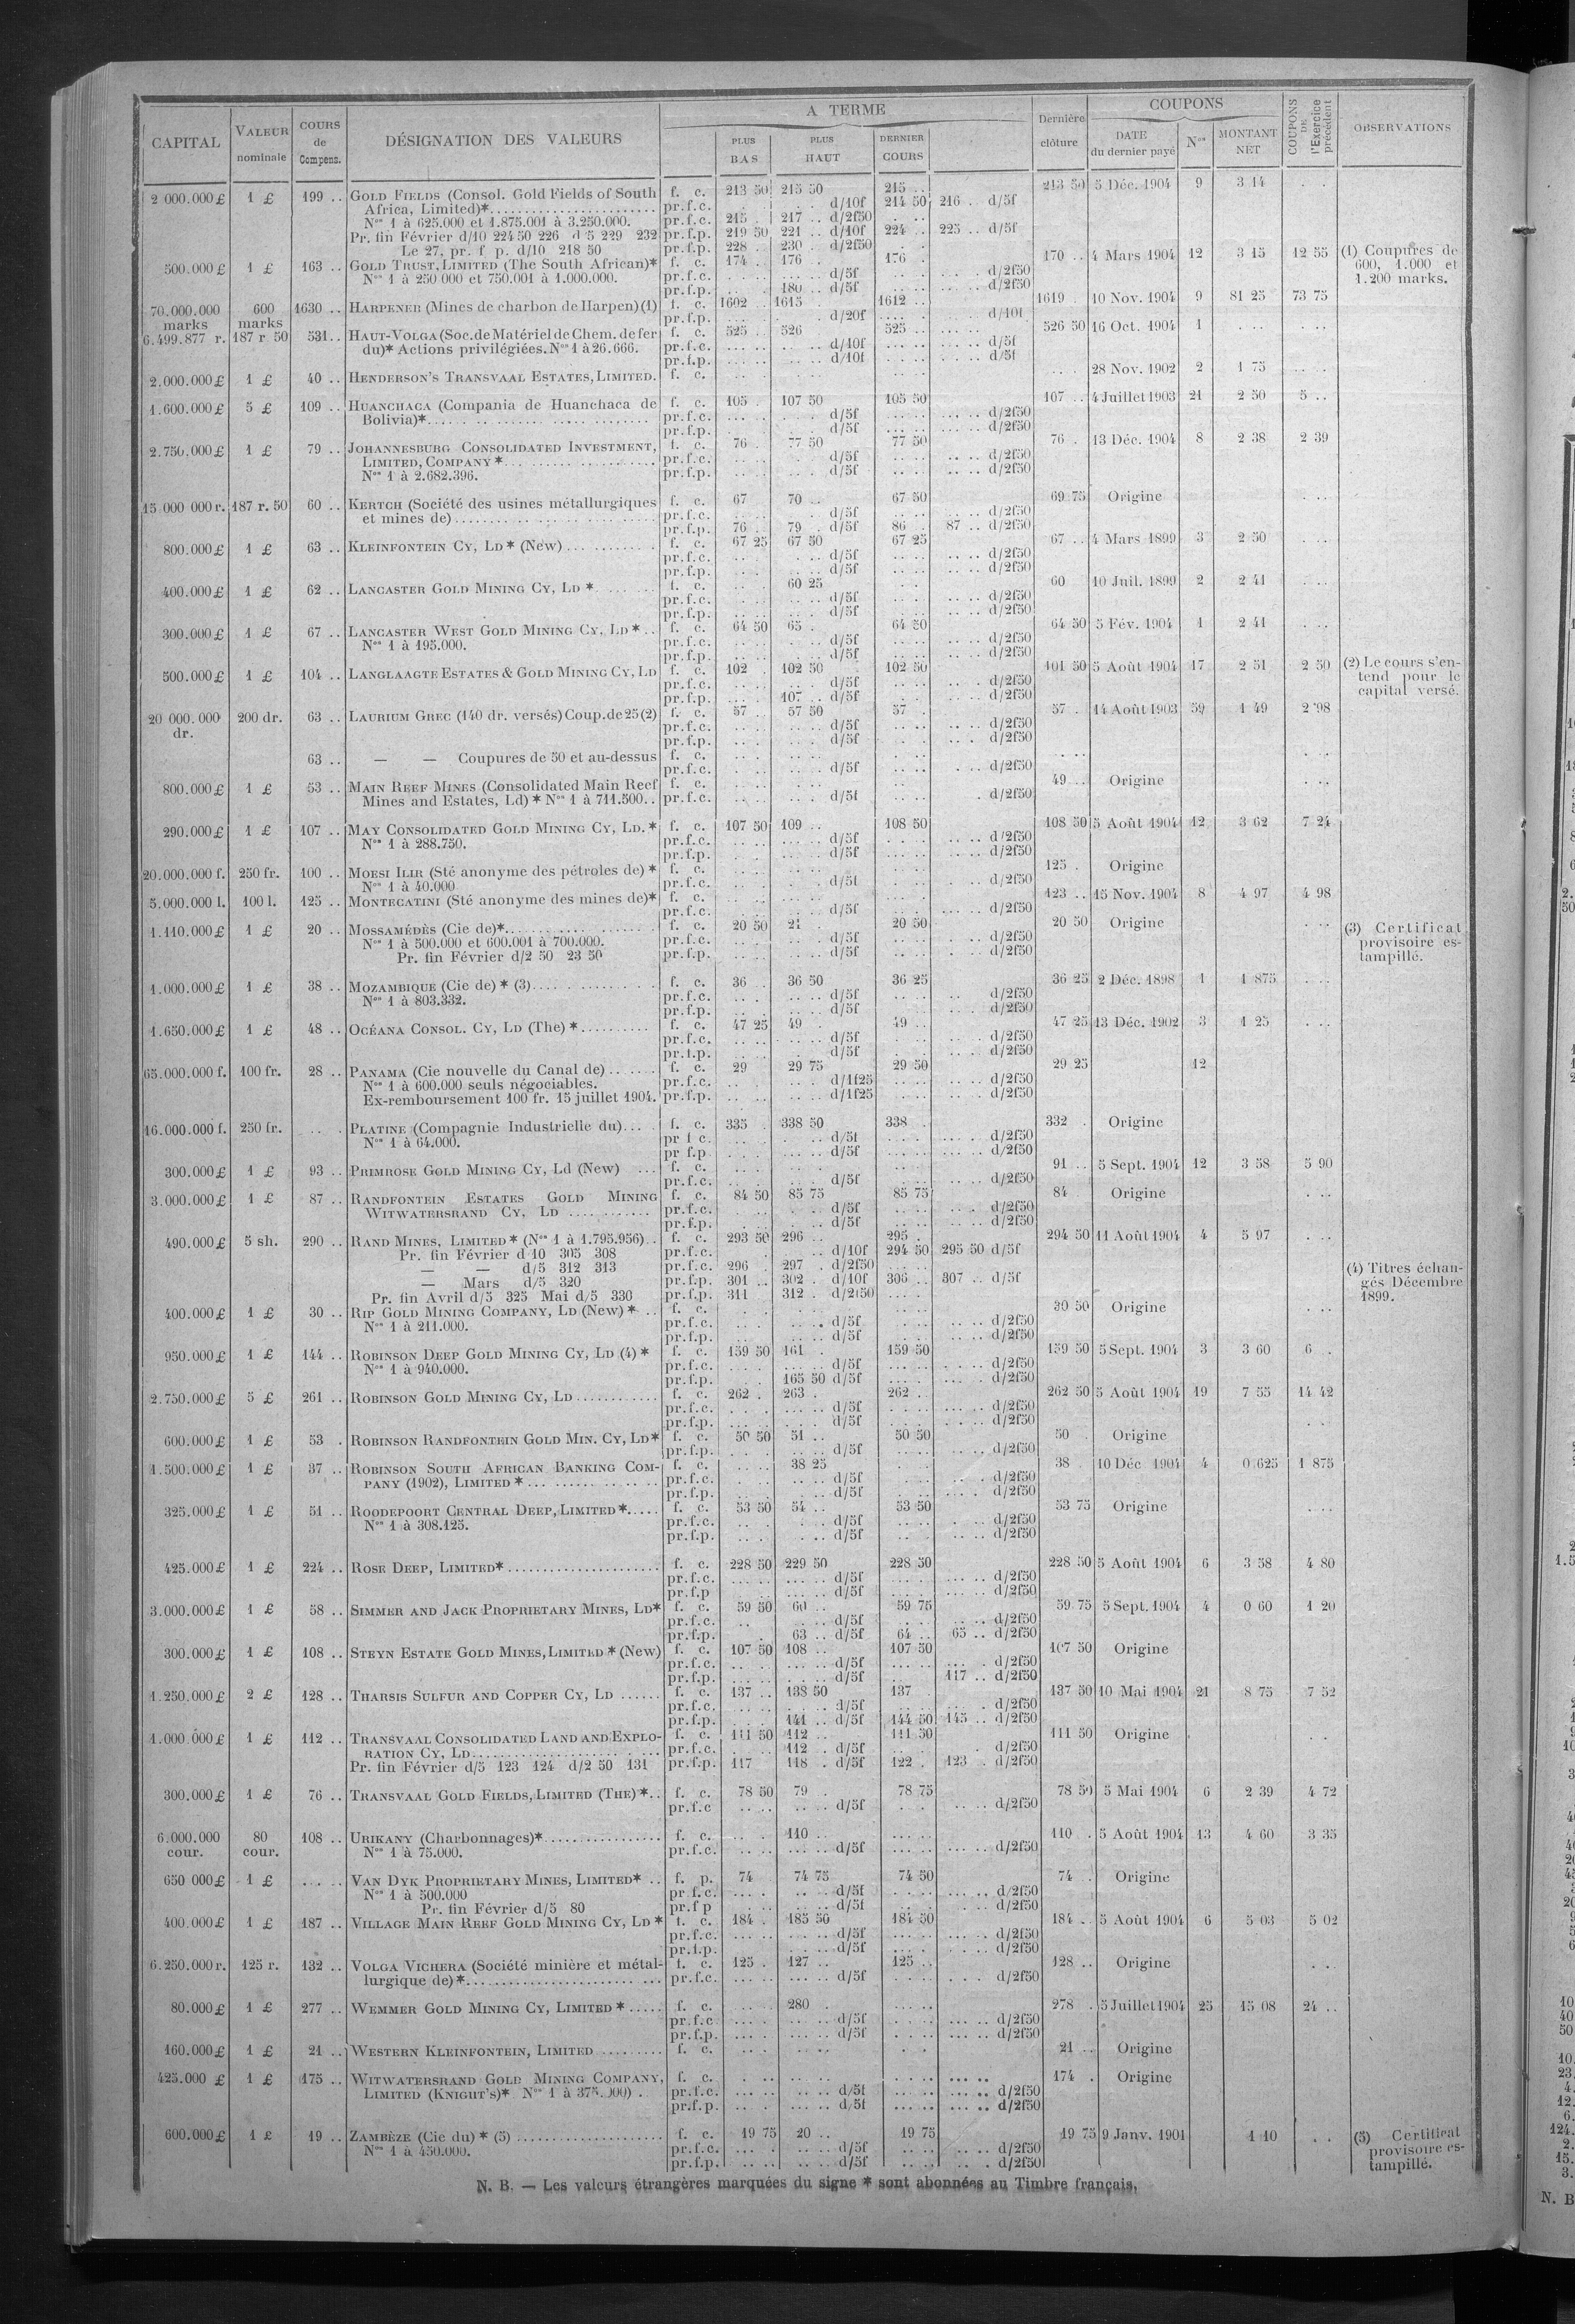 CAPITAL VALEUR nominale COURS de Compens. DÉSIGNATION DES VALEURS A TERME PLUS BAS PLUS HAUT DERNIER COURS Dernière clôture COUPONS DATE du dernier payé Nos MONTANT NET COUPONS DE l'Exercice précédent OBSERVATIONS
2 000.000 £ 1 £ 199 .. GOLD FIELDS (Consol. Gold Fields of South f. c. 213 50 215 50 215 .. 213 50 5 Déc. 1904 9 3 14
Africa, Limited)* pr.f.c. d/10f 214 50 216 .. d/5f
Nos 1 à 625.000 et 1.875.001 à 3.250.000. pr.f.c. 215 . 217 .. d/2f50
Pr. fin Février d/10 224 50 226 d 5 229 232 pr.f.p. 219 50 221 .. d/10f 224 .. 225 .. d/5f
Le 27, pr. f p. d/10 218 50 pr.f.p. 228 . 230 . d/2f50
500.000 £ 1 £ 163 .. GOLD TRUST, LIMITED (The South African)* f. c. 174 . 176 . 176 . 170 .. 4 Mars 1904 12 3 15 12 55 (1) Coupures de
Nos 1 à 250 000 et 750.001 à 1.000.000. pr.f.c. d/5f d/2f50 600, 1.000 et
pr.f.p. 180 .. d/5f d/2f50 1.200 marks.
70.000.000 600 1630 .. HARPENER (Mines de charbon de Harpen) (1) f. c. 1602 .. 1615 . 1612 .. 1619 . 10 Nov. 1904 9 81 25 73 75
marks marks pr.f.p. d/20f d/10f
6.499.877 r. 187 r 50 531.. HAUT-VOLGA (Soc. de Matériel de Chem. de fer f. c. 525 .. 526 525 .. 526 50 16 Oct. 1904 1
du)* Actions privilégiées. Nos 1 à 26.666. pr.f.c. d/10f d/5f
pr.f.p. d/10f d/5f
2.000.000 £ 1 £ 40 .. HENDERSON'S TRANSVAAL ESTATES, LIMITED. f. c. 28 Nov. 1902 2 1 75
1.600.000 £ 5 £ 109 .. HUANCHACA (Compania de Huanchaca de f. c. 105 . 107 50 105 50 107 .. 4 Juillet 1903 21 2 50 5 ..
Bolivia)* pr.f.c. d/5f d/2f50
pr.f.p. d/5f d/2f50
2.750.000 £ 1 £ 79 .. JOHANNESBURG CONSOLIDATED INVESTMENT, f. c. 76 . 77 50 77 50 76 . 13 Déc. 1904 8 2 38 2 39
LIMITED, COMPANY * pr.f.c. d/5f d/2f50
Nos 1 à 2.682.396. pr.f.p. d/5f d/2f50
15 000 000 r. 187 r. 50 60 .. KERTCH (Société des usines métallurgiques f. c. 67 70 .. 67 50 69 75 Origine
et mines de) pr.f.c. d/5f d/2f50
pr.f.p. 76 . 79 . d/5f 86 . 87 .. d/2f50
800.000 £ 1 £ 63 .. KLEINFONTEIN CY, LD * (New) f. c. 67 25 67 50 67 25 67 .. 4 Mars 1899 3 2 50
pr.f.c. d/5f d/2f50
pr.f.p. d/5f d/2f50
400.000 £ 1 £ 62 .. LANCASTER GOLD MINING CY, LD * f. c. 60 25 60 10 Juil. 1899 2 2 41
pr.f.c. d/5f d/2f50
pr.f.p. d/5f d/2f50
300.000 £ 1 £ 67 .. LANCASTER WEST GOLD MINING CY, LD * f. c. 64 50 65 . 64 50 64 50 5 Fév. 1904 1 2 41
Nos 1 à 195.000. pr.f.c. d/5f d/2f50
pr.f.p. d/5f d/2f50
500.000 £ 1 £ 104 .. LANGLAAGTE ESTATES & GOLD MINING CY, LD f. c. 102 . 102 50 102 50 101 50 5 Août 1904 17 2 51 2 50 (2) Le cours s'en-
pr.f.c. d/5f d/2f50 tend pour le
pr.f.p. 107 .. d/5f d/2f50 capital versé.
20 000.000 200 dr. 63 .. LAURIUM GREC (140 dr. versés) Coup. de 25 (2) f. c. 57 . 57 50 57 . 57 . 14 Août 1903 59 1 49 2 98
dr. pr.f.c. d/5f d/2f50
pr.f.p. d/5f d/2f50
63 .. — — Coupures de 50 et au-dessus f. c.
pr.f.c. d/5f d/2f50
800.000 £ 1 £ 53 .. MAIN REEF MINES (Consolidated Main Reef f. c. 49 .. Origine
Mines and Estates, Ld) * Nos 1 à 711.500.. pr.f.c. d/5f d/2f50
290.000 £ 1 £ 107 .. MAY CONSOLIDATED GOLD MINING CY, LD. * f. c. 107 50 109 .. 108 50 108 50 5 Août 1904 12 3 62 7 24
Nos 1 à 288.750. pr.f.c. d/5f d/2f50
pr.f.p. d/5f d/2f50
20.000.000 f. 250 fr. 100 .. MOESI ILIR (Sté anonyme des pétroles de) * f. c. 125 . Origine
Nos 1 à 40.000 pr.f.c. d/5f d/2f50
5.000.000 l. 100 l. 125 .. MONTECATINI (Sté anonyme des mines de)* f. c. 123 .. 15 Nov. 1904 8 4 97 4 98
pr.f.c. d/5f d/2f50
1.110.000 £ 1 £ 20 .. MOSSAMÉDÈS (Cie de)* f. c. 20 50 21 . 20 50 20 50 Origine (3) Certificat
Nos 1 à 500.000 et 600.001 à 700.000. pr.f.c. d/5f d/2f50 provisoire es-
Pr. fin Février d/2 50 23 50 pr.f.p. d/5f d/2f50 tampillé.
1.000.000 £ 1 £ 38 .. MOZAMBIQUE (Cie de) * (3) f. c. 36 .. 36 50 36 25 36 25 2 Déc. 1898 1 1 875
Nos 1 à 803.332. pr.f.c. d/5f d/2f50
pr.f.p. d/5f d/2f50
1.650.000 £ 1 £ 48 .. OCÉANA CONSOL. CY, LD (The) * f. c. 47 25 49 . 49 .. 47 25 13 Déc. 1902 3 1 25
pr.f.c. d/5f d/2f50
pr.f.p. d/5f d/2f50
65.000.000 f. 100 fr. 28 .. PANAMA (Cie nouvelle du Canal de) f. c. 29 29 75 29 50 29 25 12
Nos 1 à 600.000 seuls négociables. pr.f.c. d/1f25 d/2f50
Ex-remboursement 100 fr. 15 juillet 1904. pr.f.p. d/1f25 d/2f50
16.000.000 f. 250 fr. PLATINE (Compagnie Industrielle du) f. c. 335 . 338 50 338 .. 332 . Origine
Nos 1 à 64.000. pr f c. d/5f d/2f50
pr f.p d/5f d/2f50
300.000 £ 1 £ 93 .. PRIMROSE GOLD MINING CY, Ld (New) f. c. 91 .. 5 Sept. 1904 12 3 58 5 90
pr.f.c. d/5f d/2f50
3.000.000 £ 1 £ 87 .. RANDFONTEIN ESTATES GOLD MINING f. c. 84 50 85 75 85 75 84 Origine
WITWATERSRAND CY, LD pr.f.c. d/5f d/2f50
pr.f.p. d/5f d/2f50
490.000 £ 5 sh. 290 .. RAND MINES, LIMITED * (Nos 1 à 1.795.956) f. c. 293 50 296 .. 295 . 294 50 11 Août 1904 4 5 97
Pr. fin Février d 10 305 308 pr.f.c. d/10f 294 50 295 50 d/5f
— — d/5 312 313 pr.f.c. 296 . 297 . d/2f50 (4) Titres échan-
— Mars d/5 320 pr.f.p. 301 .. 302 . d/10f 306 .. 307 .. d/5f gés Décembre
Pr. fin Avril d/5 325 Mai d/5 330 pr.f.p. 311 312 . d/2f50 1899.
400.000 £ 1 £ 30 .. RIP GOLD MINING COMPANY, LD (New) * f. c. 30 50 Origine
Nos 1 à 211.000. pr.f.c. d/5f d/2f50
pr.f.p. d/5f d/2f50
950.000 £ 1 £ 144 .. ROBINSON DEEP GOLD MINING CY, LD (4) * f. c. 159 50 161 . 159 50 159 50 5 Sept. 1904 3 3 60 6 .
Nos 1 à 940.000. pr.f.c. d/5f d/2f50
pr.f.p. 165 50 d/5f d/2f50
2.750.000 £ 5 £ 261 .. ROBINSON GOLD MINING CY, LD f. c. 262 . 263 . 262 . 262 50 5 Août 1904 19 7 55 14 42
pr.f.c. d/5f d/2f50
pr.f.p. d/5f d/2f50
600.000 £ 1 £ 53 . ROBINSON RANDFONTEIN GOLD MIN. CY, LD* f. c. 50 50 51 .. 50 50 50 . Origine
pr.f.p. d/5f d/2f50
1.500.000 £ 1 £ 37 .. ROBINSON SOUTH AFRICAN BANKING COM- f. c. 38 25 38 . 10 Déc 1904 4 0 625 1 875
PANY (1902), LIMITED * pr.f.c. d/5f d/2f50
pr.f.p. d/5f d/2f50
325.000 £ 1 £ 51 .. ROODEPOORT CENTRAL DEEP, LIMITED * f. c. 53 50 54 .. 53 50 53 75 Origine
Nos 1 à 308.125. pr.f.c. d/5f d/2f50
pr.f.p. d/5f d/2f50
425.000 £ 1 £ 224 .. ROSE DEEP, LIMITED* f. c. 228 50 229 50 228 50 228 50 5 Août 1904 6 3 58 4 80
pr.f.c. d/5f d/2f50
pr.f.p d/5f d/2f50
3.000.000 £ 1 £ 58 .. SIMMER AND JACK PROPRIETARY MINES, LD* f. c. 59 50 60 .. 59 75 59 75 5 Sept. 1904 4 0 60 1 20
pr.f.c. d/5f d/2f50
pr.f.p. 63 .. d/5f 64 .. 65 .. d/2f50
300.000 £ 1 £ 108 .. STEYN ESTATE GOLD MINES, LIMITED * (New) f. c. 107 50 108 .. 107 50 107 50 Origine
pr.f.c. d/5f d/2f50
pr.f.p. d/5f 117 .. d/2f50
1.250.000 £ 2 £ 128 .. THARSIS SULFUR AND COPPER CY, LD f. c. 137 .. 138 50 137 . 137 50 10 Mai 1904 21 8 75 7 52
pr.f.c. d/5f d/2f50
pr.f.p. 141 .. d/5f 144 50 145 .. d/2f50
1.000.000 £ 1 £ 112 .. TRANSVAAL CONSOLIDATED LAND AND EXPLO- f. c. 111 50 112 .. 111 50 111 50 Origine
RATION CY, LD pr.f.c. 112 . d/5f d/2f50
Pr. fin Février d/5 123 124 d/2 50 131 pr.f.p. 117 118 . d/5f 122 . 123 . d/2f50
300.000 £ 1 £ 76 .. TRANSVAAL GOLD FIELDS, LIMITED (THE) *.. f. c. 78 50 79 . 78 75 78 50 5 Mai 1904 6 2 39 4 72
pr.f.c d/5f d/2f50
6.000.000 80 108 .. URIKANY (Charbonnages)* f. c. 110 .. 110 . 5 Août 1904 13 4 60 3 35
cour. cour. Nos 1 à 75.000. pr.f.c. d/5f d/2f50
650 000 £ 1 £ VAN DYK PROPRIETARY MINES, LIMITED* .. f. p. 74 74 75 74 50 74 . Origine
Nos 1 à 500.000 pr f.c. d/5f d/2f50
Pr. fin Février d/5 80 pr.f p d/5f d/2f50
400.000 £ 1 £ 187 .. VILLAGE MAIN REEF GOLD MINING CY, LD * f. c. 184 . 185 50 184 50 184 .. 5 Août 1904 6 5 03 5 02
pr.f.c. d/5f d/2f50
pr.f.p. d/5f d/2f50
6.250.000 r. 125 r. 132 .. VOLGA VICHERA (Société minière et métal- f. c. 125 . 127 .. 125 .. 128 .. Origine
lurgique de) * pr.f.c. d/5f d/2f50
80.000 £ 1 £ 277 .. WEMMER GOLD MINING CY, LIMITED * f. c. 280 . 278 . 5 Juillet 1904 25 15 08 24 ..
pr.f.c d/5f d/2f50
pr.f.p. d/5f d/2f50
160.000 £ 1 £ 21 .. WESTERN KLEINFONTEIN, LIMITED f. c. 21 .. Origine
425.000 £ 1 £ 175 .. WITWATERSRAND GOLD MINING COMPANY, f. c. 174 . Origine
LIMITED (KNIGHT'S)* Nos 1 à 375.000) . pr.f.c. d/5f d/2f50
pr.f.p. d/5f d/2f50
600.000 £ 1 £ 19 .. ZAMBÈZE (Cie du) * (5) f. c. 19 75 20 .. 19 75 19 75 9 Janv. 1901 1 10 (5) Certificat
Nos 1 à 450.000. pr.f.c. d/5f d/2f50 provisoire es-
pr.f.p. d/5f d/2f50 tampillé.
N. B. — Les valeurs étrangères marquées du signe * sont abonnées au Timbre français.
N. B